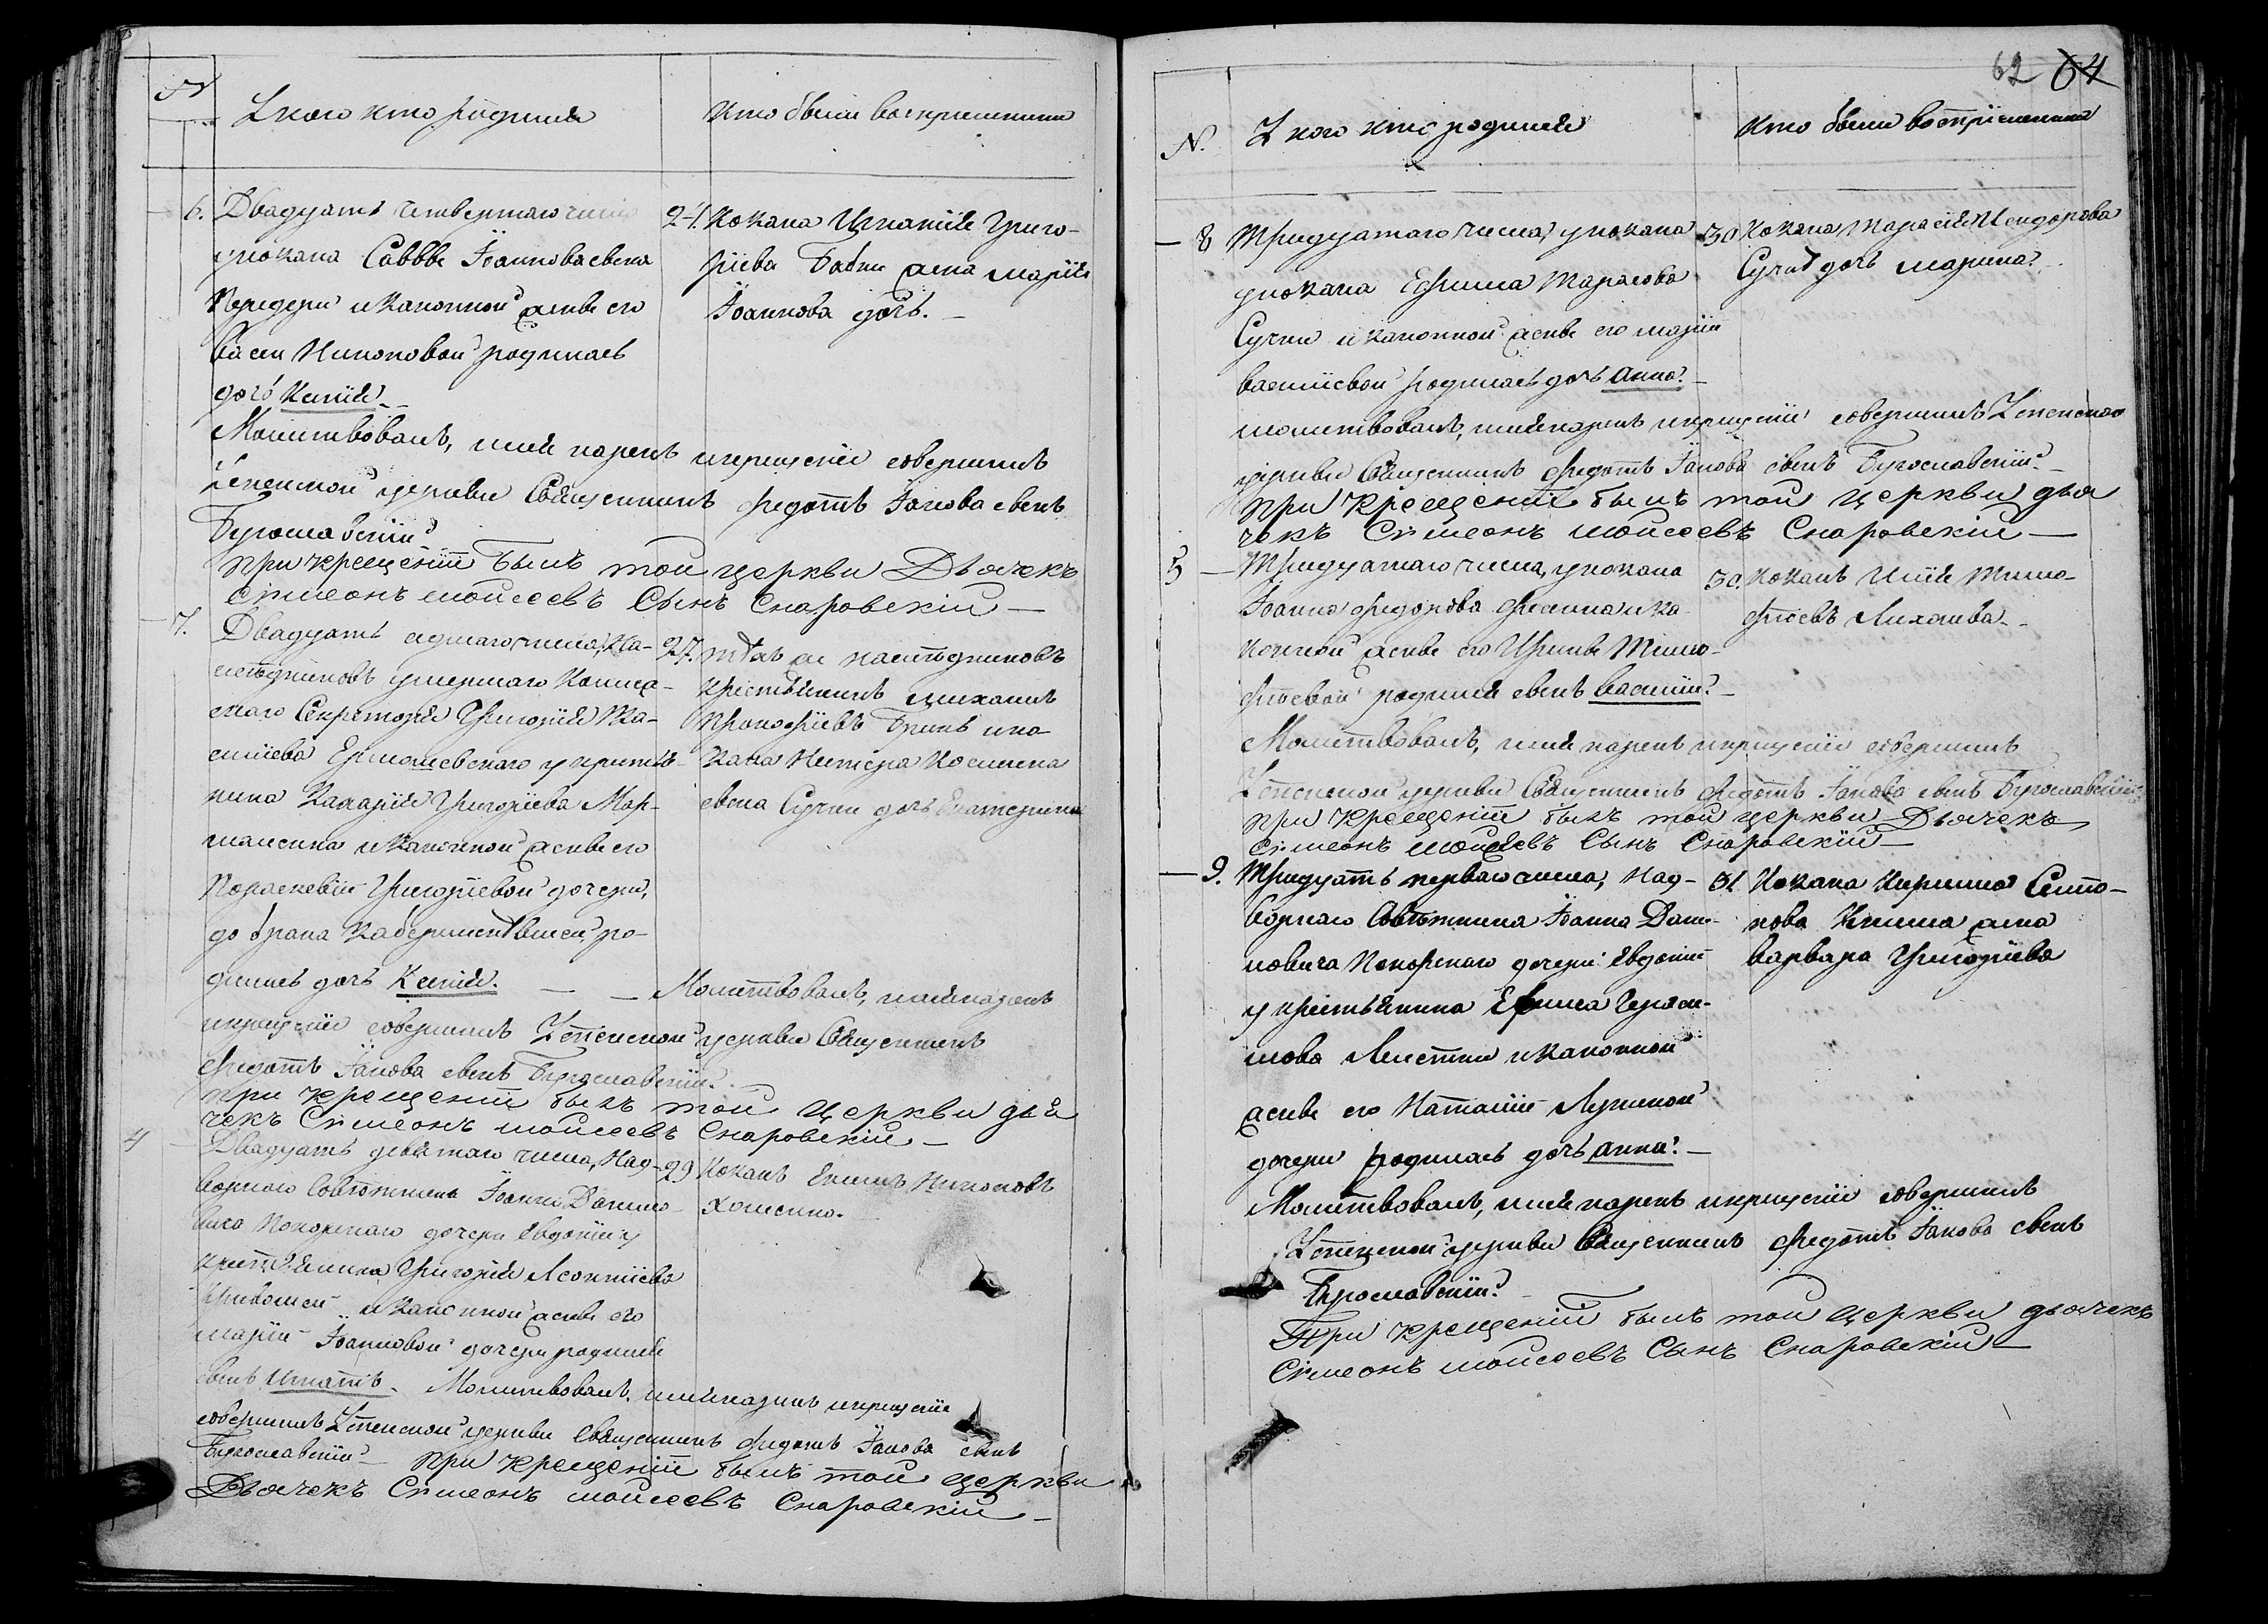 №
У кого кто родился
Кто были восприемники
6. Двадцать четвертаго числа
укозака Саввы Іоаннова сына
Передери и законной жены его
Васси Никоновой родилась
дочь Ксенія.
24. Козака Игнатія Григо-
ріева Бабки жена Марія
Іоаннова дочь.
Молитвовалъ, имя нарекъ и крещеніе совершилъ
Успенской церкви Священникъ Федотъ Іаковъ сынъ
Бугославскій
при крещеніи былъ той церкви Дьячекъ
Сімеонъ Моисеевъ Сынъ Снаровскій
7. Двадцать седмаго числа, На-
слѣдниковъ умершаго Колежс-
скаго Секретаря Григорія Ва-
силіева Ермолаевскаго у крестья-
нина Захарія Григоріева Мар-
и законной жены его
Параскевіи Григоріевой дочери,
до брака
дилась дочь Ксенія.
27. тѣхъ же наслѣдниковъ
крестьянинъ Михаилъ
Прокофіевъ и ко-
зака Нестера Косьмина
сына Сучки дочь Екатерина
Молитвовалъ, имя нарекъ
и крещеніе совершилъ Успенской церкви Священникъ
Федотъ Іакова сынъ Бугославскій.
при крещеніи былъ той церкви дья
чекъ Сімеонъ Моисеевъ Снаровскій
4 Двадцать девятаго числа, Над-
ворнаго Совѣтника Іоанна Данило-
вича Покорскаго дочери Евдокіи у
крестьянина Григорія Леонтіева
и законной жены его
Маріи Іоанновой дочери родился
сынъ Игнатъ. Молитвовалъ, имя нарекъ и крещеніе
29 Козакъ Никоновъ
совершилъ Успенской церкви Священникъ Федотъ Іакова сынъ
Бугославскій при крещеніи былъ той церкви
Дьячекъ Сімеонъ Моисеевъ Снаровскій
62 64
№
У кого кто родился
Кто были воспріемники
8 Тридцатаго числа, укозака
укозака Ефима Тарасова
Сучки и законной жены его Маріи
Василіевой родилась дочь Анна.
30 Козака Тарасія Исидорова
Сучки дочь Марина.
Молитвовалъ, имя нарекъ и крещеніе совершилъ Успенской
церкви Священникъ Федотъ Іакова сынъ Бугославскій.
при крещеніи былъ той церкви дья
чекъ Сімеонъ Моисеевъ Снаровскій
5 Тридцатаго числа, укозака
Іоанна Федорова и за-
конной жены его Ирины Тимо-
фѣевой родился сынъ Василій.
30. Козакъ Илія Тимо-
фѣевъ
Молитвовалъ, имя нарекъ и крещеніе совершилъ
Успенской церкви Священникъ Федотъ Іакова сынъ Бугославскій
при крещеніи былъ той церкви Дьячекъ
Сімеонъ Моисеевъ Сынъ Снаровскій
9. Тридцать перваго числа, Над-
ворнаго Совѣтника Іоанна Дани-
ловича Покорскаго дочери Евдокіи
у крестьянина Ефима Гераси-
мова и законной
жены его Наталіи Лукиной
дочери родилась дочь Анна.
31 Козака Кирилла
жена
Варвара Григоріева
Молитвовалъ, имя нарекъ и крещеніе совершилъ
Успенской церкви Священникъ Федотъ Іакова сынъ
Бугославскій.
При крещеніи былъ той церкви дьячекъ
Сімеонъ Моисеевъ Сынъ Снаровскій